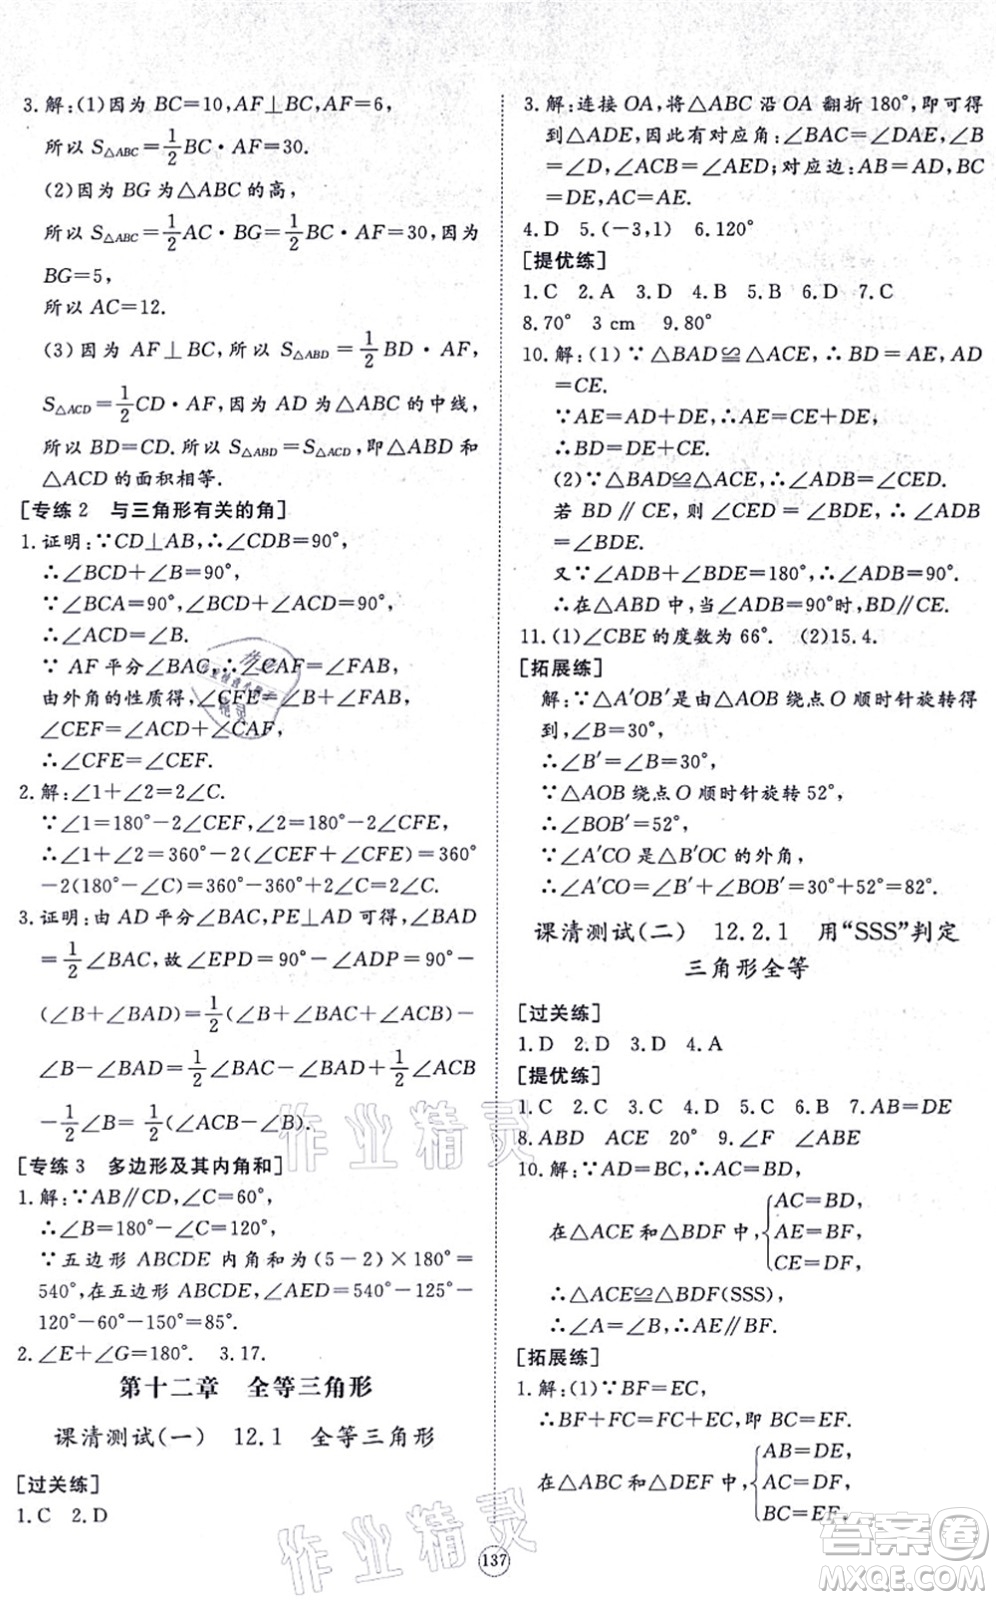 3.解:(1)因为 BC=10,AF⊥BC,AF=6,
所以 S△ABC=1/2BC·AF=30.
(2)因为 BG 为△ABC 的高,
所以 S△ABC=1/2AC·BG=1/2BC·AF=30,因为
BG=5,
所以 AC=12.
(3)因为 AF⊥BC,所以 S△ABD=1/2BD·AF,
S△ACD=1/2CD·AF,因为 AD 为△ABC 的中线,
所以 BD=CD.所以 S△ABD=S△ACD,即△ABD 和
△ACD 的面积相等.
[专练2 与三角形有关的角]
1.证明:∵CD⊥AB,∴∠CDB=90°,
∴∠BCD+∠B=90°,
∵∠BCA=90°,∠BCD+∠ACD=90°,
∴∠ACD=∠B.
∵AF平分∠BAC,∴∠CAF=∠FAB,
由外角的性质得,∠CFE=∠B+∠FAB,
∠CEF=∠ACD+∠CAF,
∴∠CFE=∠CEF.
2.解:∠1+∠2=2∠C.
∵∠1=180°-2∠CEF,∠2=180°-2∠CFE,
∴∠1+∠2=360°-2(∠CEF+∠CFE)=360°
-2(180°-∠C)=360°-360°+2∠C=2∠C.
3.证明:由 AD 平分∠BAC,PE⊥AD 可得,∠BAD
=1/2∠BAC,故∠EPD=90°-∠ADC=90°-
(∠B+∠BAD)=1/2(∠B+∠BAC+∠ACB)-
∠B-∠BAD=1/2∠BAC-∠BAD+1/2∠ACB
-1/2∠B=1/2(∠ACB-∠B).
[专练3 多边形及其内角和]
1.解:∵AB∥CD,∠C=60°,
∴∠B=180°-∠C=120°,
∵五边形 ABCDE 内角和为(5-2)×180°=
540°,在五边形 ABCDE,∠AED=540°-125°-
120°-60°-150°=85°.
2.∠E+∠G=180°. 3.17.
第十二章 全等三角形
课清测试(一) 12.1 全等三角形
[过关练]
1.C 2.D
3.解:连接 OA,将△ABC 沿 OA 翻折180°,即可得
到△ADE,因此有对应角:∠BAC=∠DAE,∠B
=∠D,∠ACB=∠AED;对应边:AB=AD,BC
=DE,AC=AE.
4.D 5.(-3,1) 6.120°
[提优练]
1.C 2.A 3.D 4.B 5.B 6.D 7.C
8.70° 3 cm 9.80°
10.解:(1)∵△BAD≌△ACE,∴BD=AE,AD
=CE.
∵AE=AD+DE,∴AE=CE+DE,
∴BD=DE+CE.
(2)∵△BAD≌△ACE,∴∠ADB=∠CED.
若 BD∥CE,则∠CED=∠BDE,∴∠ADB
=∠BDE,
又∵∠ADB+∠BDE=180°,∴∠ADB=90°.
∴在△ABD 中,当∠ADB=90°时,BD∥CE.
11.(1)∠CBE的度数为66°. (2)15.4.
[拓展练]
解:∵△A′OB′是由△AOB绕点O顺时针旋转得
到,∠B=30°,
∴∠B′=∠B=30°,
∵△AOB绕点O顺时针旋转52°,
∴∠BOB′=52°,
∵∠A′CO是△B′OC的外角,
∴∠A′CO=∠B′+∠BOB′=30°+52°=82°.
课清测试(二) 12.2.1 用“SSS”判定
三角形全等
[过关练]
1.D 2.D 3.D 4.A
[提优练]
1.C 2.C 3.B 4.D 5.C 6.B 7.AB=DE
8.ABD ACE 20° 9.∠F ∠ABE
10.解:∵AD=BC,∴AC=BD,
在△ACE 和△BDF 中,{AC=BD,
AE=BF,
CE=DF,
∴△ACE≌△BDF(SSS),
∴∠A=∠B,∴AE∥BF.
[拓展练]
1.解:(1)∵BF=EC,
∴BF+FC=FC+EC,即 BC=EF.
在△ABC 和△DEF 中,{AB=DE,
AC=DF,
BC=EF,
137
作业精灵
作业精灵
答案圈
MXQE.COM